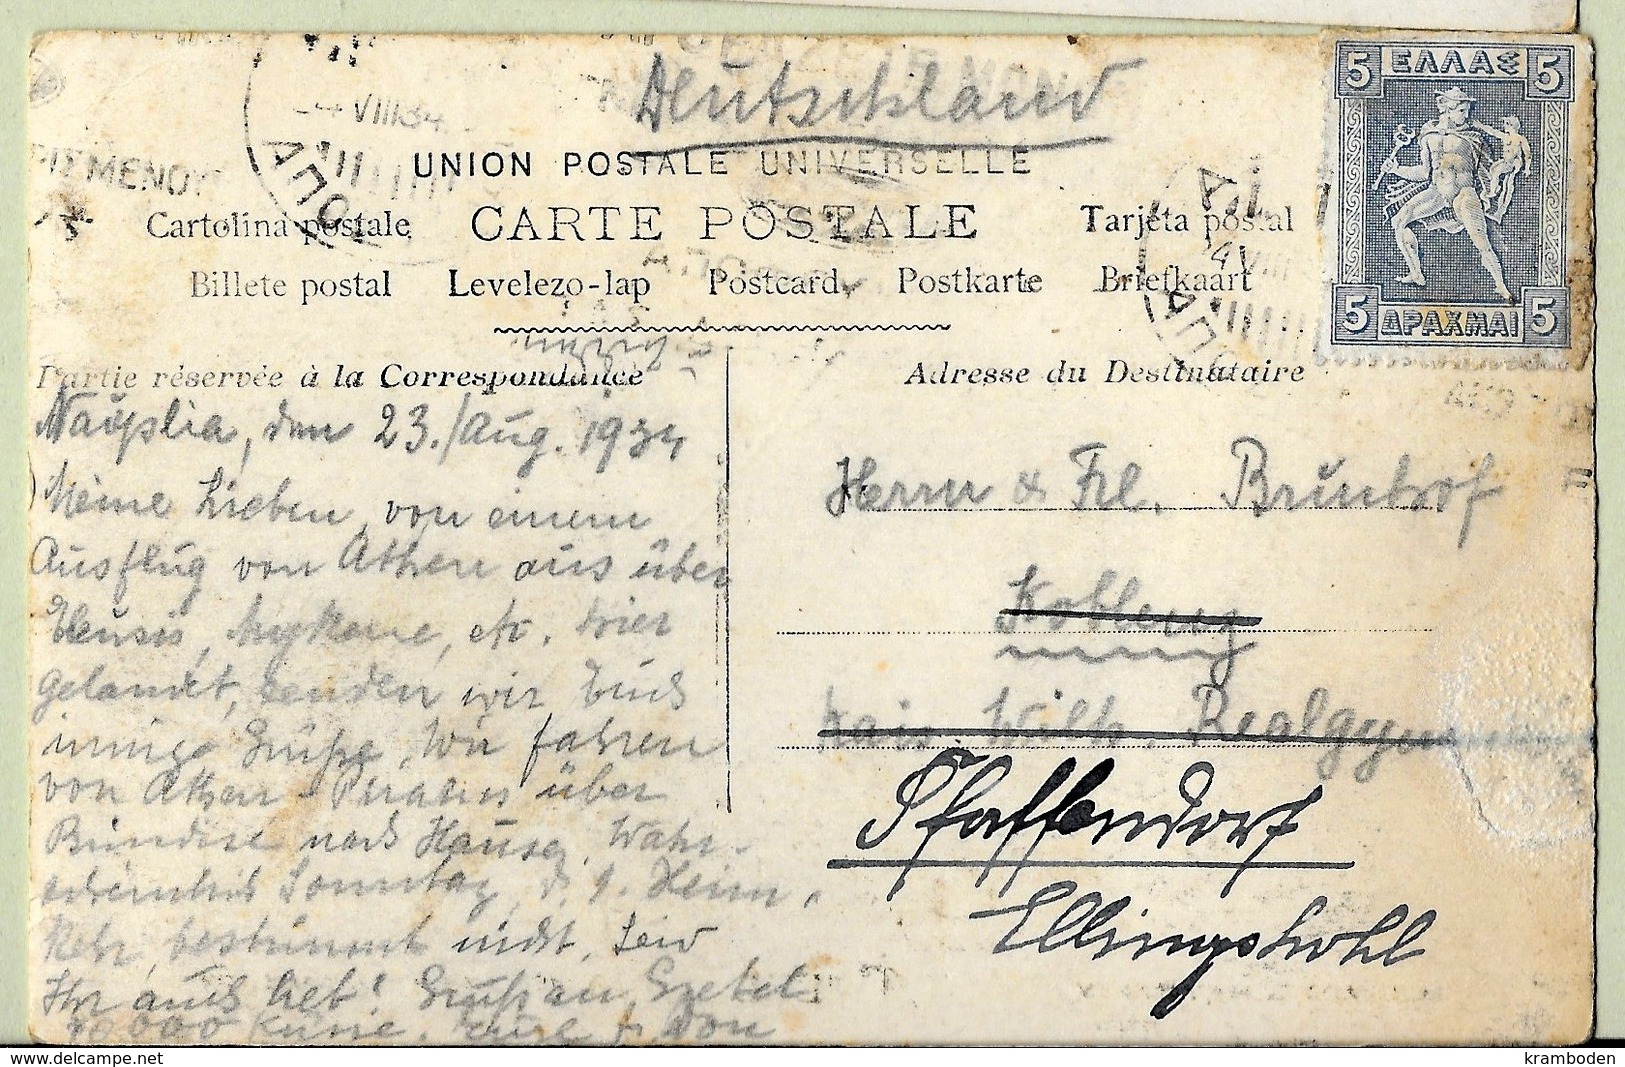 Deutschland
ΕΛΛΑΣ
5 5
5 ΔΡΑΧΜΑΙ 5
VIII 34
ΑΠΟ
UNION POSTALE UNIVERSELLE
Cartolina postale CARTE POSTALE Tarjeta postal
Billete postal Levelezo-lap Postcard Postkarte Briefkaart
Partie réservée à la Correspondance
Adresse du Destinataire
Nauplia, den 23./Aug. 1934
Meine Lieben, von einem
Ausflug von Athen aus über
Eleusis, Mykene, etc. hier
gelandet, senden wir Euch
innige Grüße, Wir fahren
von Athen-Piraeus über
Brindisi nach Hause, Wahr-
scheinlich Sonntag, d. 9. Heim-
kehr, bestimmt nicht. Seid
Ihr auch lieb! Grüße an
000 Küsse. Eure
Herrn & Frl. Brinkhof
Koblenz
Kais. Wilh. Realgym
Pfaffendorf
Ellingshohl
kramboden